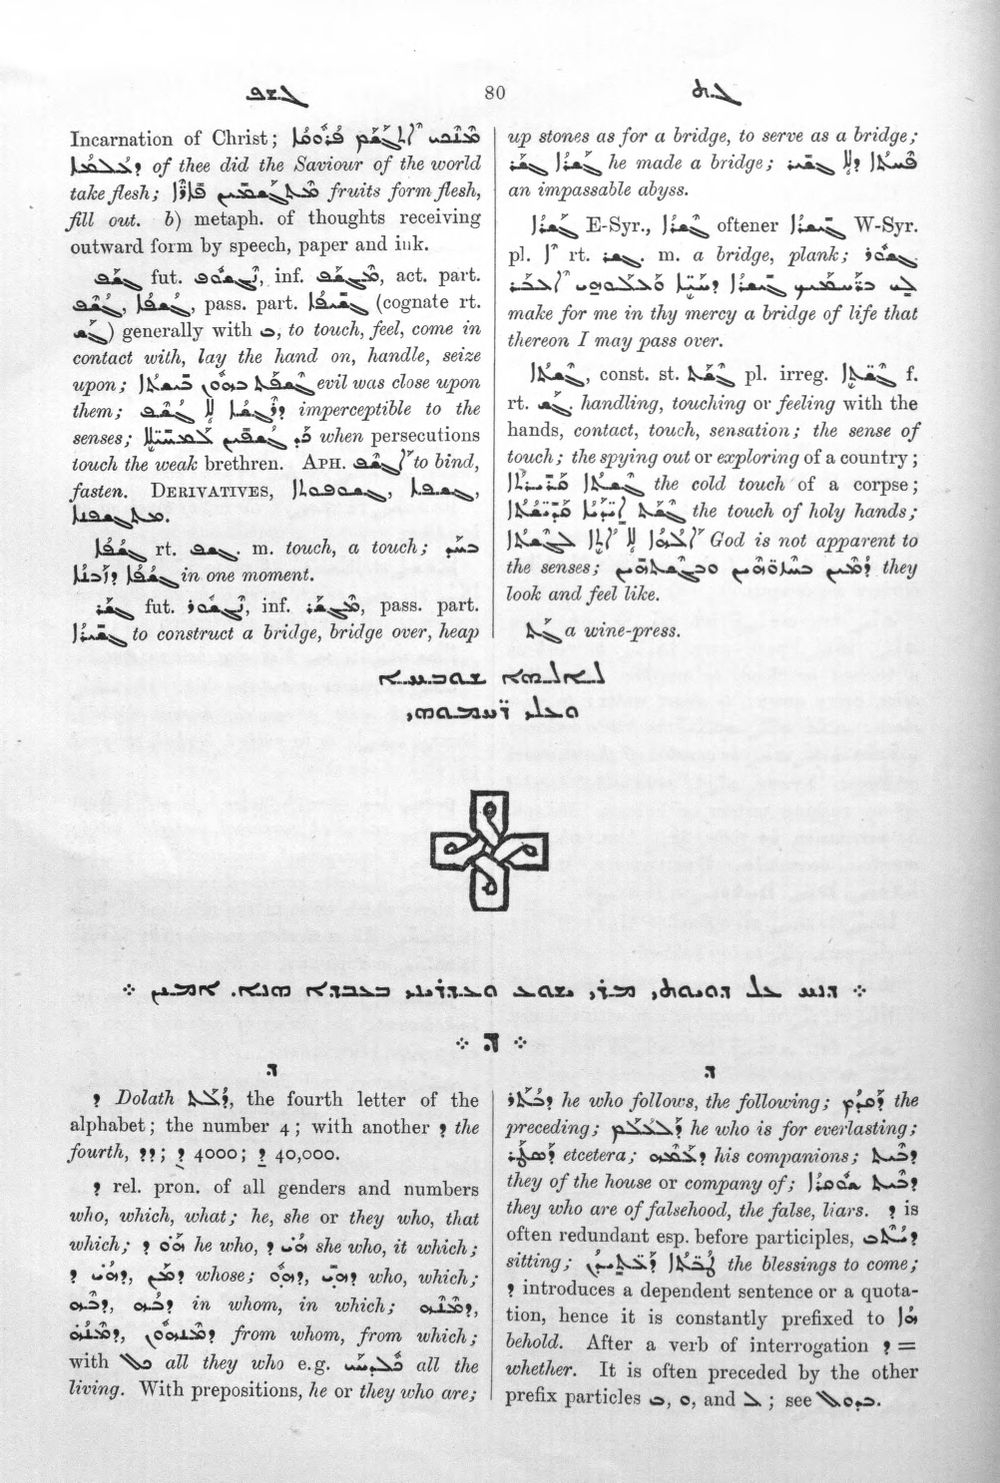 ܓܫܦ 80 ܓܬ
Incarnation of Christ; ܡܢܟܝ ܐܬܓܫܡ ܦܪܘܩܐ
ܕܥܠܡܐ of thee did the Saviour of the world
take flesh; ܡܬܓܫܡܝܢ ܦܐܪܐ fruits form flesh,
fill out. b) metaph. of thoughts receiving
outward form by speech, paper and ink.
ܓܫܦ fut. ܢܓܫܘܦ, inf. ܡܓܫܦ, act. part.
ܓܫܦ, ܓܫܦܐ, pass. part. ܓܫܝܦܐ (cognate rt.
ܓܫ) generally with ܒ, to touch, feel, come in
contact with, lay the hand on, handle, seize
upon; ܓܫܦܬ ܒܗܘܢ ܒܝܫܬܐ evil was close upon
them; ܠܐ ܓܫܦ imperceptible to the
senses; ܟܕ ܓܫܦܝܢ ܠܡܚܝܠܐ when persecutions
touch the weak brethren. APH. ܐܓܫܦ to bind,
fasten. DERIVATIVES, ܓܫܘܦܘܬܐ, ܓܫܦܐ,
ܡܬܓܫܦܢܐ.
ܓܫܦܐ rt. ܓܫܦ. m. touch, a touch; ܒܚܕ
ܓܫܦܐ ܕܙܒܢܐ in one moment.
ܓܫܪ fut. ܢܓܫܘܪ, inf. ܡܓܫܪ, pass. part.
ܓܫܝܪܐ to construct a bridge, bridge over, heap
up stones as for a bridge, to serve as a bridge;
ܓܫܪ ܓܫܪܐ he made a bridge; ܦܚܬܐ ܕܠܐ ܓܫܝܪ
an impassable abyss.
ܓܫܪܐ E-Syr., ܓܫܪܐ oftener ܓܝܫܪܐ W-Syr.
pl. ܐ rt. ܓܫܪ. m. a bridge, plank; ܓܫܘܪ
ܠܝ ܒܪܚܡܝܟ ܓܝܫܪܐ ܕܚܝܐ ܘܥܠܘܗܝ ܐܥܒܪ
make for me in thy mercy a bridge of life that
thereon I may pass over.
ܓܫܬܐ, const. st. ܓܫܬ pl. irreg. ܓܫܐ f.
rt. ܓܫ. handling, touching or feeling with the
hands, contact, touch, sensation; the sense of
touch; the spying out or exploring of a country;
ܓܫܬܐ ܩܪܝܪܬܐ the cold touch of a corpse;
ܓܫܬ ܐܝܕܝܐ ܩܕܝܫܬܐ the touch of holy hands;
ܐܠܗܐ ܠܐ ܐܬܐ ܠܓܫܬܐ God is not apparent to
the senses; ܕܡܝܢ ܒܚܙܘܗܝܢ ܘܒܓܫܬܗܝܢ they
look and feel like.
ܓܬ a wine-press.
ܠܐܠܗܐ ܫܘܒܚܐ
ܘܥܠܝ ܪܚܡܘܗܝ
܀ ܕܢܚ ܥܠ ܕܘܝܘܬܝ ܡܪܝ ܝܫܘܥ ܘܥܕܪܝܢܝ ܒܥܒܕܐ ܗܢܐ. ܐܡܝܢ ܀
܀ ܕ ܀
ܕ
ܕ Dolath ܕܠܬ, the fourth letter of the
alphabet; the number 4; with another ܕ the
fourth, ܕܕ; ܕ 4000; ܕ 40,000.
ܕ rel. pron. of all genders and numbers
who, which, what; he, she or they who, that
which; ܗܘ ܕ he who, ܗܝ ܕ she who, it which;
ܕܗܝ, ܕܡܢ ܕ whose; ܕܗܘ, ܕܗܝ who, which;
ܕܒܗ, ܕܒܗ in whom, in which; ܕܡܢܗ,
ܕܡܢܗ, ܕܡܢܗܘܢ from whom, from which;
with ܟܠ all they who e.g. ܟܠ ܕܚܝ all the
living. With prepositions, he or they who are;
ܕ
ܕܒܬܪ he who follows, the following; ܕܩܕܡ the
preceding; ܕܠܥܠܡ he who is for everlasting;
ܕܫܪ etcetera; ܕܥܡܗ his companions; ܕܒܝܬ
they of the house or company of; ܕܒܝܬ ܫܘܩܪܐ
they who are of falsehood, the false, liars. ܕ is
often redundant esp. before participles, ܕܝܬܒ
sitting; ܛܒܬܐ ܕܥܬܝܕܢ the blessings to come;
ܕ introduces a dependent sentence or a quota-
tion, hence it is constantly prefixed to ܗܐ
behold. After a verb of interrogation ܕ =
whether. It is often preceded by the other
prefix particles ܒ, ܘ, and ܠ; see ܒܕܘܠ.